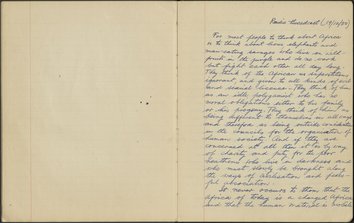 Radio Broadcast (19/10/50)
For most people to think about Africa
is to think about lions elephants and
man-eating savages who live in wild
forests in the jungle and do no work
but fight each other all day long.
They think of the African as superstitious
ignorant and given to all kinds of evil
and sexual licence. They think of him
as an idle polygamist who has no
moral obligations either to his family
or his progeny. They think of him as
being different to themselves in all ways
and therefore as being outside
in the councils for the organisation of
human society. And if they are
concerned at all then it is by way
of charity and pity for the poor
heathens who live in darkness and
who must slowly be brought along
the ways of civilisation and
It never occurs to them that the
Africa of today is a changed Africa
and that the human material is